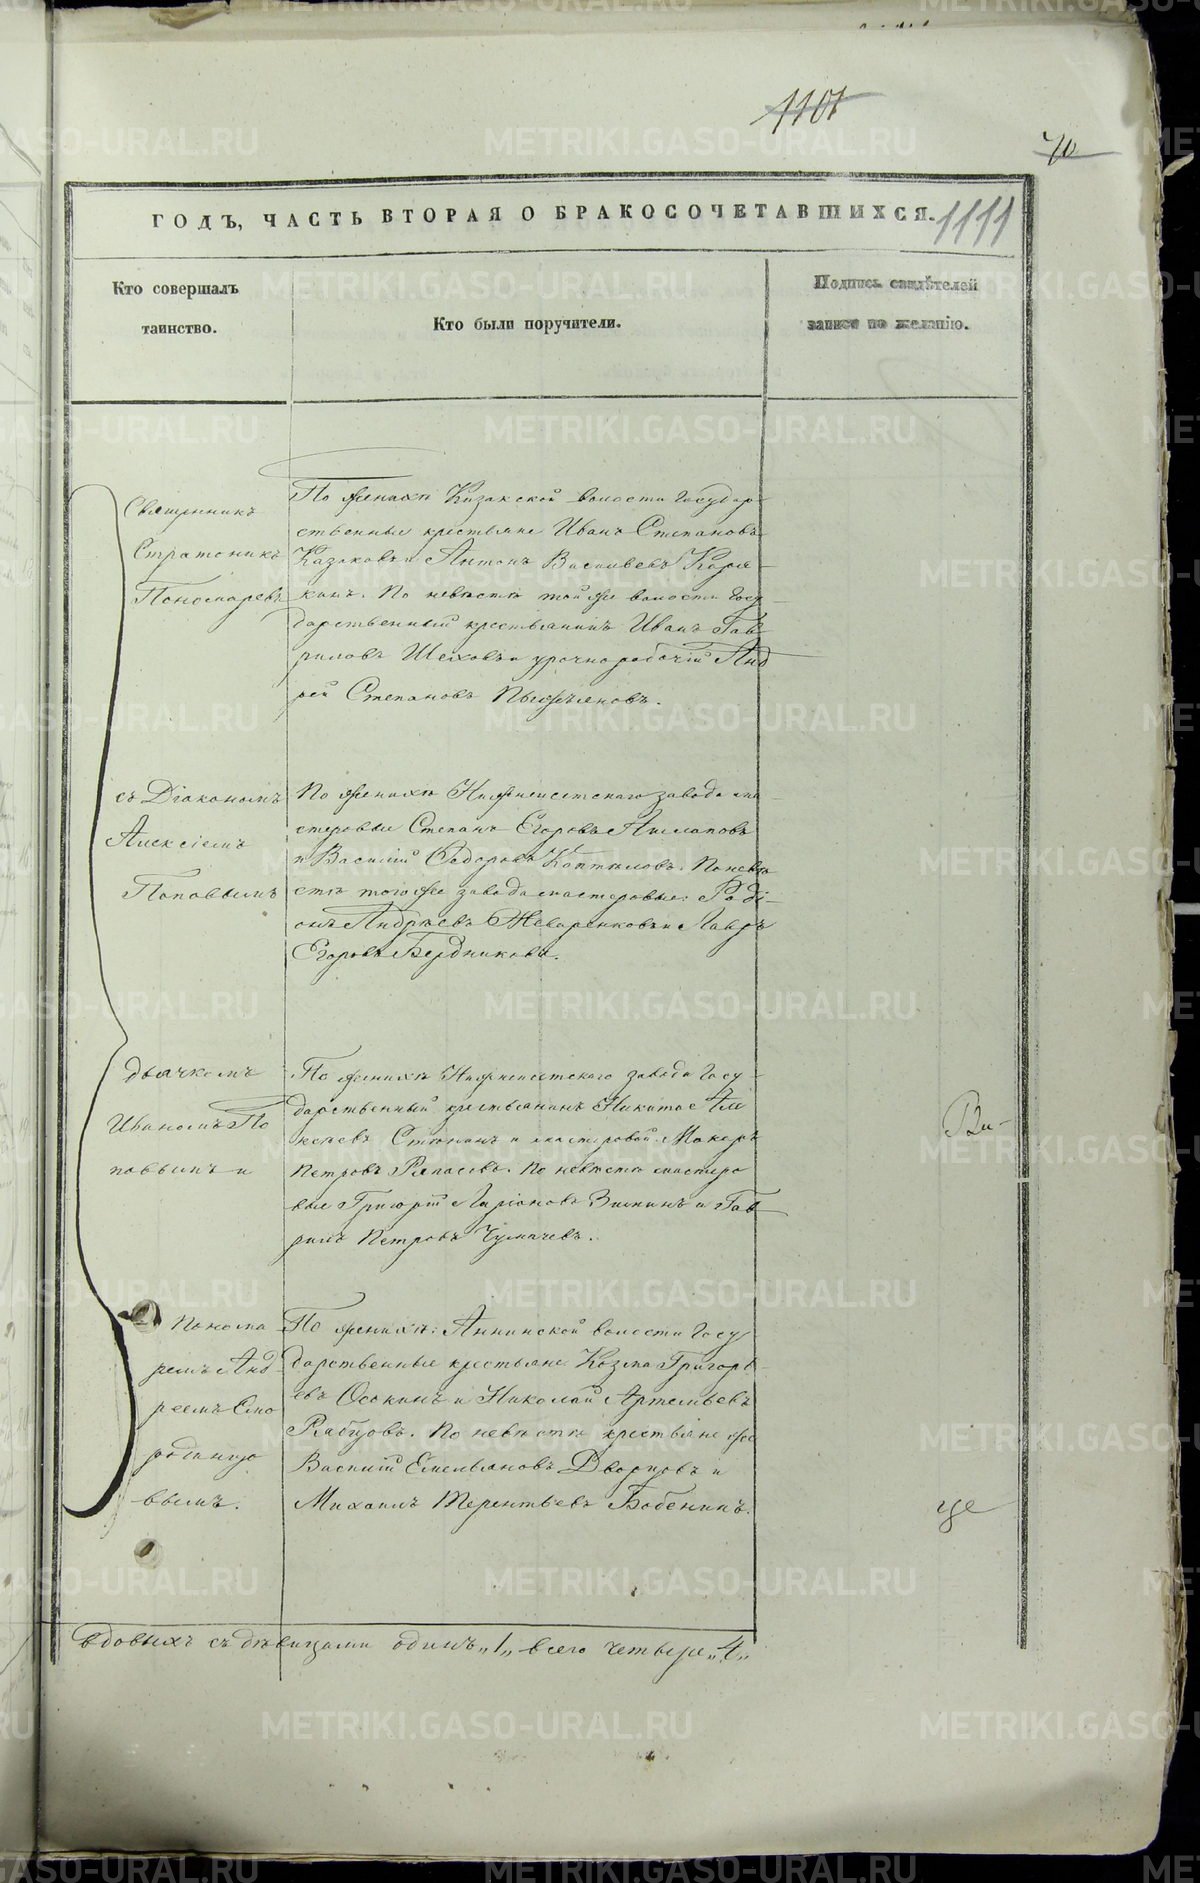 1101
70
ГОДЪ, ЧАСТЬ ВТОРАЯ О БРАКОСОЧЕТАВШИХСЯ.
1111
Кто совершалъ
таинство.
Кто были поручители.
Подпись свидѣтелей
записи по желанію.
Священникъ
Стратоникъ
Пономаревъ
По женихѣ Казакской волости Государ-
ственные крестьяне Иванъ Степановъ
Казаковъ и Антонъ Васильевъ Каря-
кинъ. По невѣстѣ той же волости Госу-
дарственный крестьянинъ Иванъ Гав
риловъ Шеховъ и урочнорабочій Анд
рей Степановъ
съ Діакономъ
Алексіемъ
Поповымъ
По женихѣ Нижнеисетскаго завода ма-
стеровые Степанъ Егоровъ
и Василій Ѳедоровъ Коптѣловъ. По невѣ
стѣ того же завода мастеровые: Роді-
онъ Андреевъ Жеваренковъ и Лавръ
Егоровъ Бердниковъ.
дьячкомъ
Иваномъ По
повымъ и
По женихѣ Нижнеисетскаго завода Госу-
дарственный крестьянинъ Никита Але
ксѣевъ и мастеровой Макаръ
Петровъ По невѣстѣ мастеро
вые Григорій Ларіоновъ Зыкинъ и Гав
рилъ Петровъ Чумачевъ.
Понома
ремъ Анд
реемъ Смо
родинцо
вымъ.
По женихѣ: Аннинской волости Госу
дарственные крестьяне Козма Григорь-
евъ Осокинъ и Николай Артемьевъ
Рябцовъ. По невѣстѣ крестьяне же
Василій Емельяновъ Дворцовъ и
Михаилъ Терентьевъ Бабенинъ.
Ви-
це
вдовыхъ съ дѣвицами одинъ „1„ всего четыре „4„
METRIKI.GASO-URAL.RU